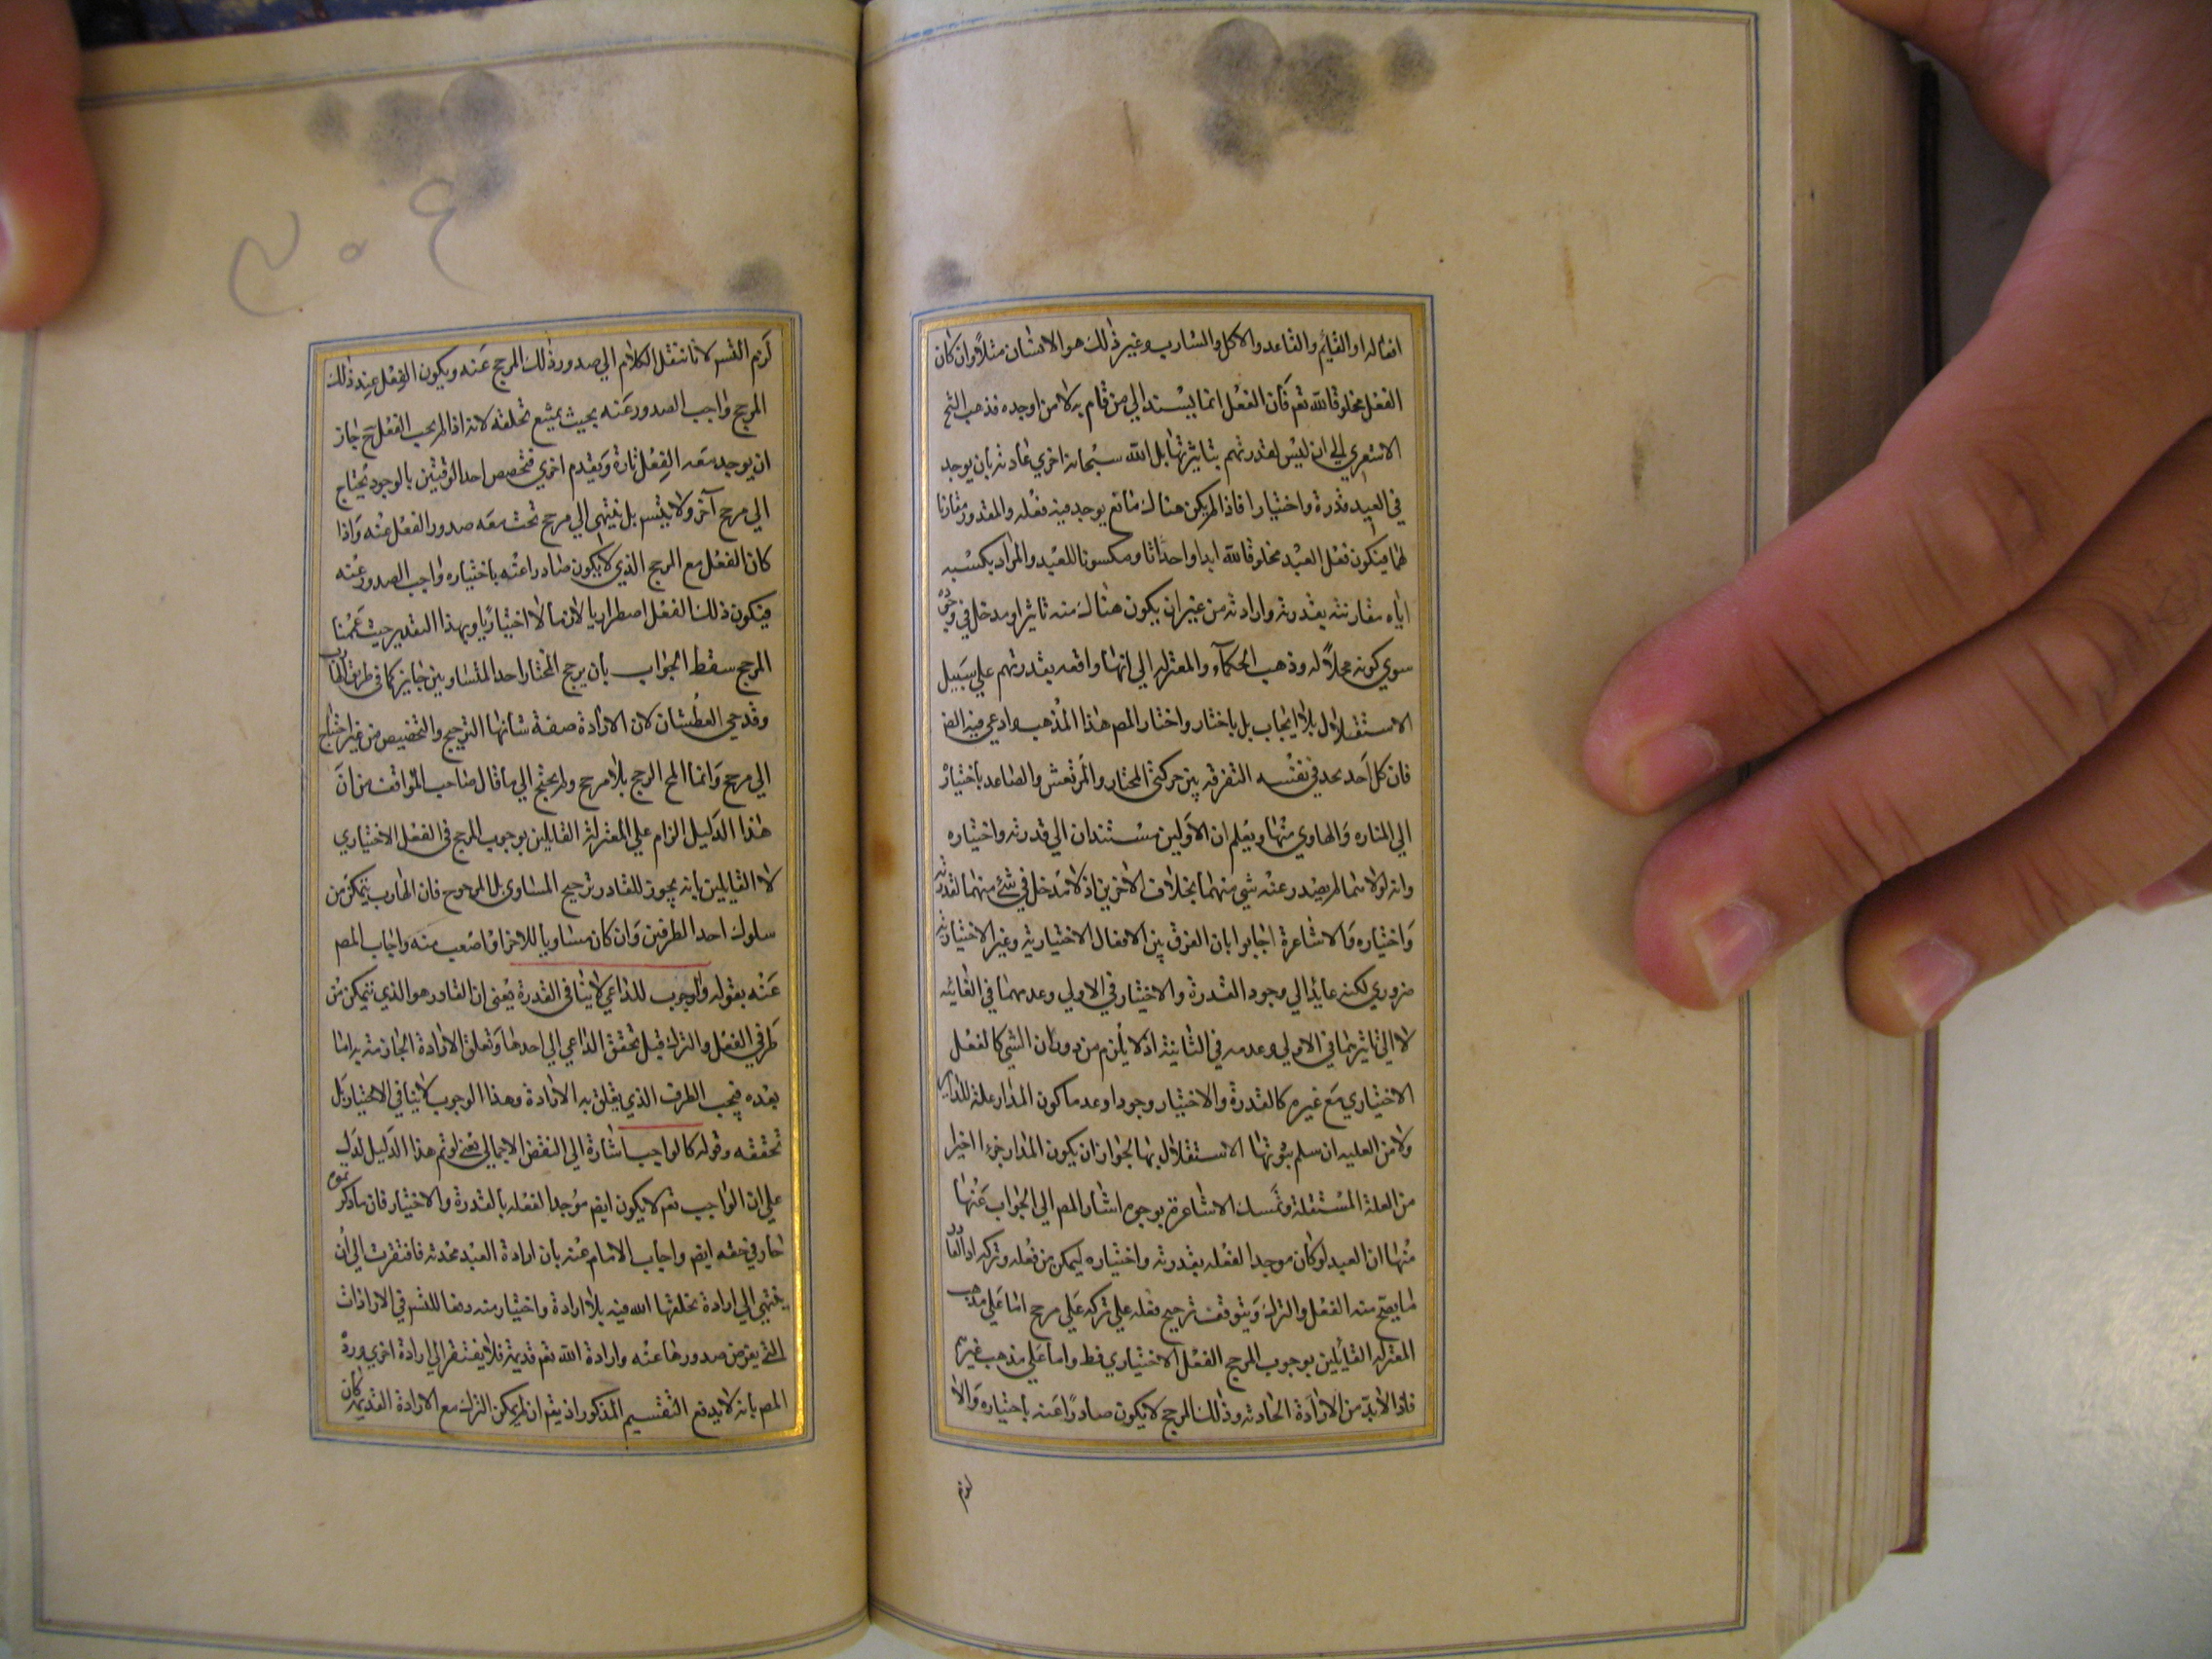 افعاله او القايم والقاعد والاكل والشارب وغير ذلك هو الانسان مثلا وان كان
الفعل مخلوقا لله تعم فان الفعل انما يستند الي من قام به لا من اوجده فذهب الشخ
الاشعري الي ان ليس لقدرتهم تاثير بل الله سبحانه اجري عادته بان يوجد
في العبد قدرة واختيارا فاذا لم يكن هناك مانع يوجد فيه فعله والمقدور مقارنا
لهما فيكون فعل العبد مخلوقا لله ابداعا واحداثا ومكسوبا للعبد والمراد بكسبه
اياه مقارنته بقدرته وارادته من غير ان يكون هناك منه تاثير او مدخل في وجوده
سوي كونه محلا له وذهب الحكماء والمعتزله الي انها واقعه بقدرتهم علي سبيل
الاستقلال بلا ايجاب بل باختيار واختار المص هذا المذهب وادعي فيه الض
فان كل احد يجد في نفسه التفرقه بين حركتي المختار والمرتعش والصاعد باختياره
الي المناره والهاوي منها ويعلم ان الاولين مستندان الي قدرته واختياره
وانه لولاهما لم يصدر عنه شي منهما بخلاف الاخرين اذ لا مدخل في شئ منهما لقدرته
واختياره والاشاعرة اجابوا بان الفرق بين الافعال الاختيارية وغير الاختيارية
ضروري لكنه عايد الي وجود القدرة والاختيار في الاولي وعدمهما في الثانيه
لا الي تاثيرهما في الاولي وعدمه في الثانية اذ لا يلزم من دوران الشي كالفعل
الاختياري مع غيره كالقدرة والاختيار وجودا وعدما كون المدار علة للداير
ولا من العليه ان سلم ثبوتها الاستقلال بها لجواز ان يكون المدار جزءا اخيرا
من العلة المستقلة وتمسك الاشاعرة بوجوه اشار المص الي الجواب عنها
منها ان العبد لو كان موجدا لفعله بقدرته واختياره ليمكن من فعله وتركه اذ القادر
ما يصح منه الفعل والترك ويتوقف ترجيح فعله علي تركه علي مرجح اما علي مذهب
المعتزله القائلين بوجوب المرجح الفعل الاختياري فظ واما علي مذهب غيرهم
فاذا لا بد من الارادة الحادثه وذلك المرجح لا يكون صادرا عنه باختياره والا
لزم
٤٠٨
لزم التس لانا ننقل الكلام الي صدور ذلك المرجح عنه ويكون الفعل عند ذلك
المرجح واجب الصدور عنه بحيث يمتنع تخلفه لانه اذا لم يجب الفعل ح جاز
ان يوجد معه الفعل تارة ويعدم اخري فتخصيص احد الوقتين بالوجود يحتاج
الي مرجح آخر ولا يتس بل ينتهي الي مرجح تجب معه صدور الفعل عنه واذا
كان الفعل مع المرجح الذي لا يكون صادرا عنه باختياره واجب الصدور عنه
فيكون ذلك الفعل اضطراريا لازما لا اختياريا وبهذا التقدير حيث عممنا
المرجح سقط الجواب بان يرجح المختار احد المتساويين جايز كما في طريق الهارب
وقدحي العطشان لان الارادة صفة شانها الترجيح والتخصيص من غير احتياج
الي مرجح وانما المح الرجح بلا مرجح ولم يحتج الي ما قال صاحب المواقف من ان
هذا الدليل الزام علي المعتزلة القايلين بوجوب المرجح في الفعل الاختياري
لا القايلين بانه يجوز للقادر ترجيح المساوي بل المرجوح فان الهارب يتمكن من
سلوك احد الطرفين وان كان مساويا للاخر او اصعب منه واجاب المص
عنه بقوله والوجوب للداعي لا ينافي القدرة يعني ان القادر هو الذي يتمكن من
طرفي الفعل والترك قبل تحقق الداعي الي احدهما وتعلق الارادة الجازمة به اما
بعده فيجب الطرف الذي يتعلق به الارادة وهذا الوجوب لا ينافي الاختيار بل
تحققه وقوله كالواجب اشارة الي النقض الاجمالي يعني لو تم هذا الدليل لدل
علي ان الواجب تعم لا يكون ايضا موجدا لفعله بالقدرة والاختيار فان ما ذكرتموه
جار في حقه ايضا واجاب الامام عنه بان ارادة العبد محدثه فافتقرت الي ان
ينتهي الي ارادة يخلقها الله فيه بلا ارادة واختيار منه دفعا للتس في الارادات
التي يفرض صدورها عنه وارادة الله تعم قديمة فلا يفتقر الي ارادة اخري ورده
المص بانه لا يدفع التقسيم المذكور اذ يقم ان لم يمكن الترك مع الارادة القديمة كان